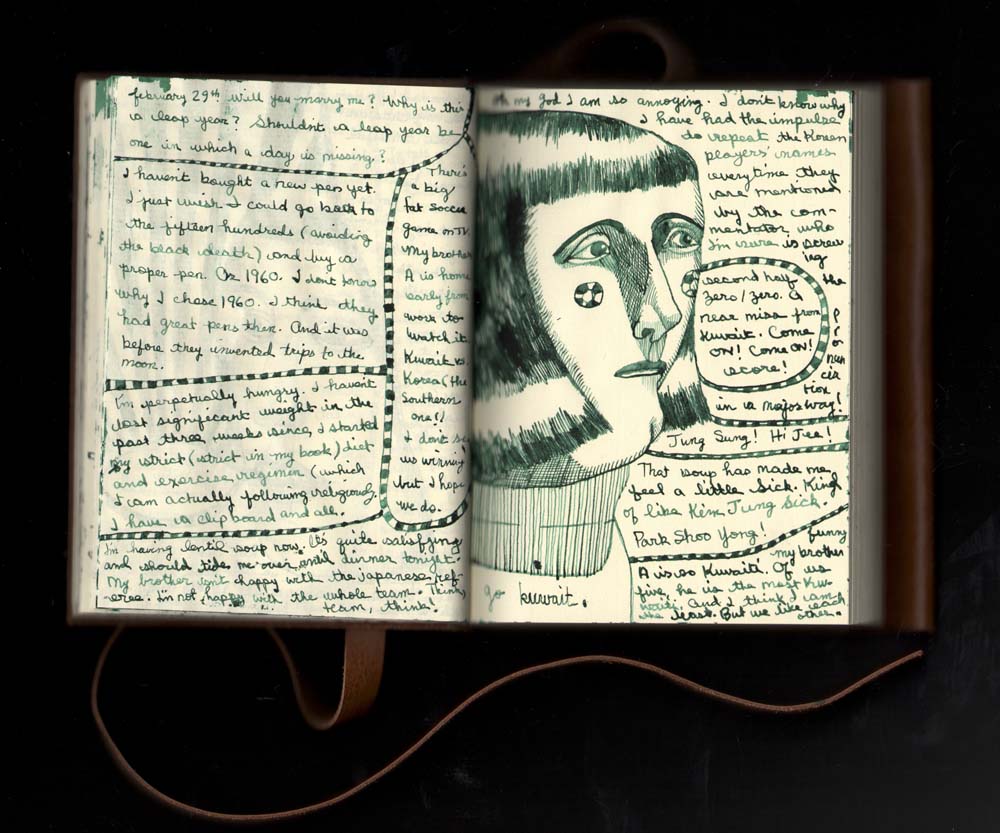 february 29th will you marry me? Why is this
a leap year? Shouldn't a leap year be
one in which a day is missing?
I haven't bought a new pen yet.
I just wish I could go back to
the fifteen hundreds (avoiding
the black death) and buy a
proper pen. Or 1960. I don't know
why I chose 1960. I think they
had great pens then. And it was
before they invented trips to the
moon.
I'm perpetually hungry. I haven't
lost significant weight in the
past three weeks since I started
my strict (strict in my book) diet
and exercise regimen (which
I am actually following religiously.
I have a clipboard and all.
There's
a big
fat soccer
game on TV.
My brother
A is home
early from
work to
watch it.
Kuwait vs.
Korea (the
Southern
one!)
I don't see
us winning
but I hope
we do.
I'm having lentil soup now. It's quite satisfying
and should tide me over until dinner tonight.
My brother isn't happy with the japanese ref-
eree. I'm not happy with the whole team. Think,
team, think!
oh my god I am so annoying. I don't know why
I have had the impulse
to repeat the Korean
players' names
everytime they
are mentioned
by the com-
mentator who
I'm sure is screw
ing
the
pronun
cia
tion
in a major way!
second half
zero/zero. a
near miss from
Kuwait. Come
ON! Come ON!
score!
Jung Sung! Hi Jee!
That soup has made me
feel a little sick. King
of like Kim Jung Sick.
Park Shoo Yong!
funny
my brother
A is so Kuwaiti. Of us
five, he is the most Kuw-
waiti. And I think I am
the least. But we like each
other.
go kuwait.